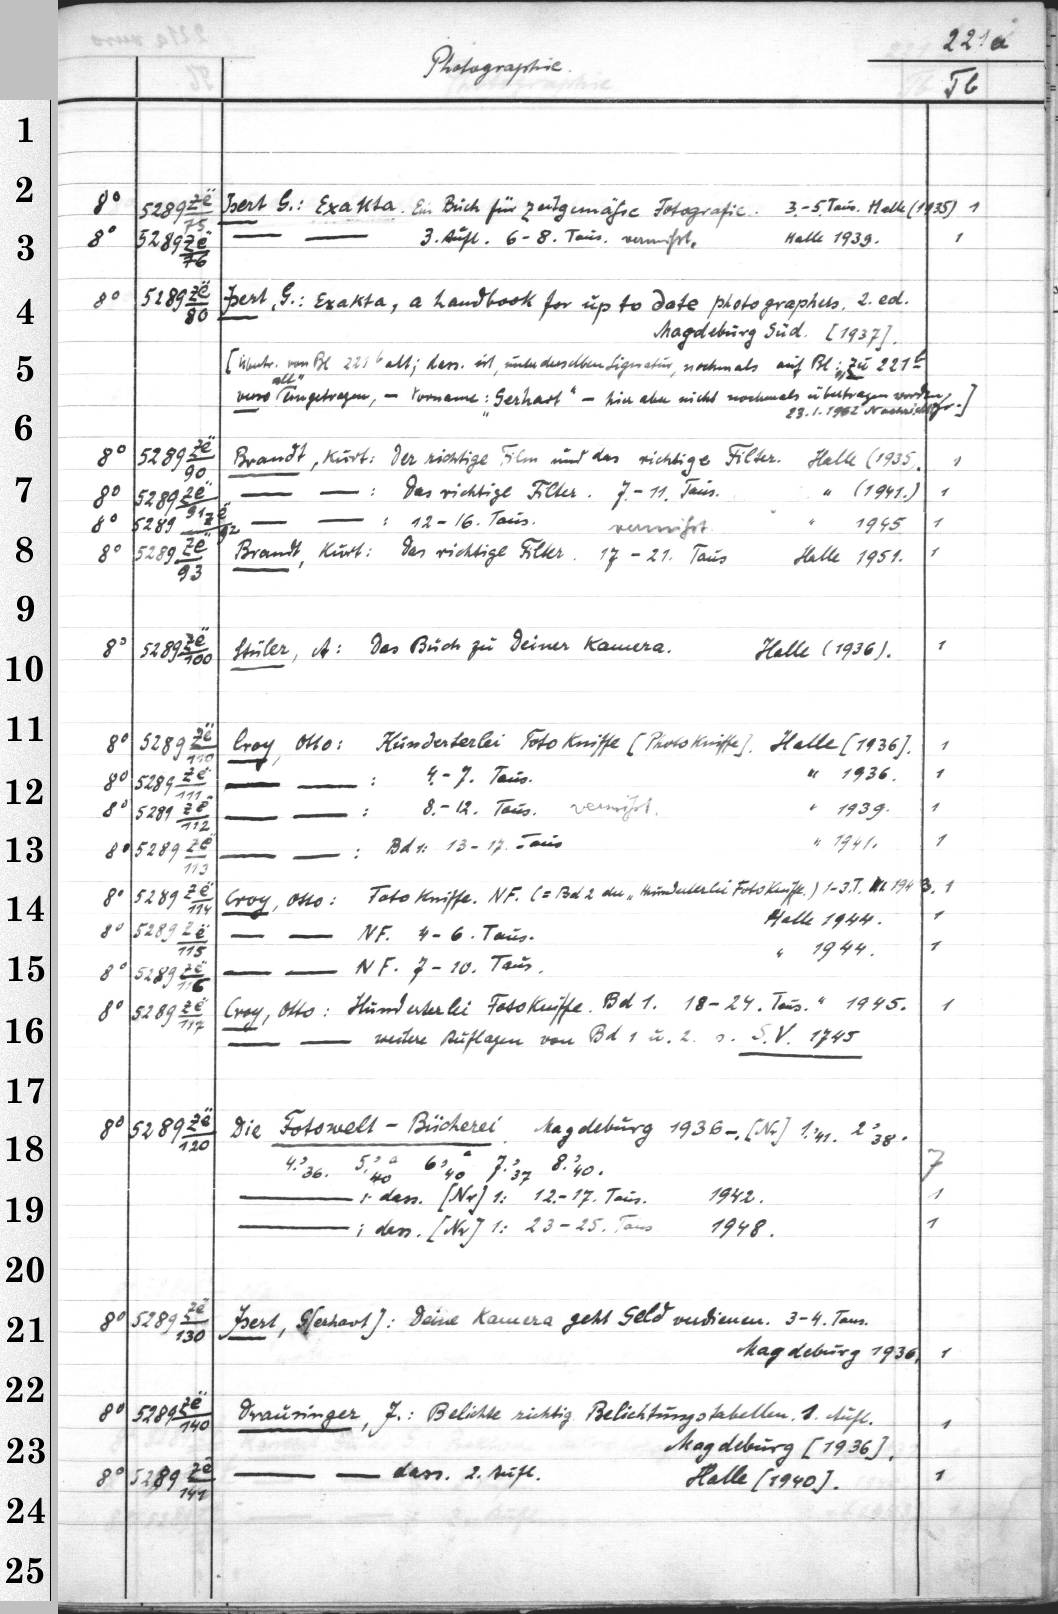 221a
Photographie.
Tb
8° 5289 zë/75 Isert G.: Exakta. Ein Buch für zeitgemäße Fotografie. 3.-5. Taus. Halle (1935) 1
8° 5289 zë/76 — — 3. Aufl. 6-8. Taus. vermißt. Halle 1939. 1
8° 5289 zë/80 Isert, G.: Exakta, a handbook for up to date photographers. 2. ed.
Magdeburg Süd. [1937].
[Übertr. von Bl 221b alt; dass. ist, unter derselben Signatur, nochmals auf Bl: „Zu 221b
verso alt" eingetragen, – Vorname: „Gerhart" – hier aber nicht nochmals übertragen worden,
23.1.1962 ]
8° 5289 zë/90 Brandt, Kurt: Der richtige Film und das richtige Filter. Halle (1935. 1
8° 5289 zë/91 — — : Das richtige Filter. 7-11. Taus. " (1941.) 1
8° 5289 zë/92 — — : 12-16. Taus. vermißt " 1945 1
8° 5289 zë/93 Brandt, Kurt: Das richtige Filter. 17-21. Taus Halle 1951. 1
8° 5289 zë/100 Stüler, A: Das Buch zu Deiner Kamera. Halle (1936). 1
8° 5289 zë/110 Croy, Otto: Hunderterlei Foto Kniffe [Photo Kniffe]. Halle [1936]. 1
8° 5289 zë/111 — — : 4-7. Taus. " 1936. 1
8° 5289 zë/112 — — : 8.-12. Taus. vermißt. " 1939. 1
8° 5289 zë/113 — — : Bd 1: 13-17. Taus " 1941. 1
8° 5289 zë/114 Croy, Otto: Foto Kniffe. NF. (= Bd 2 der „Hunderterlei Foto Kniffe.) 1-3.T. 1943. 1
Halle 1944. 1
8° 5289 zë/115 — — NF. 4-6. Taus.
" 1944. 1
8° 5289 zë/116 — — NF. 7-10. Taus.
8° 5289 zë/117 Croy, Otto: Hunderterlei Foto Kniffe. Bd 1. 18-24. Taus. " 1945. 1
— — weitere Auflagen von Bd 1 u. 2. s. S.V. 1745
8° 5289 zë/120 Die Fotowelt - Bücherei. Magdeburg 1936-. [Nr] 1.'41. 2'38.
4.'36. 5.'40 6.'40 7.'37 8.'40. 7
— : dass. [Nr] 1: 12.-17. Taus. 1942. 1
— ; dass. [Nr] 1: 23-25. Taus 1948. 1
8° 5289 zë/130 Isert, G[erhart]: Deine Kamera geht Geld verdienen. 3-4. Taus.
Magdeburg 1936, 1
8° 5289 zë/140 Drausinger, J.: Belichte richtig Belichtungstabellen. 1. Aufl. 1
Magdeburg [1936].
8° 5289 zë/141 — — dass. 2. Aufl. Halle [1940]. 1
1
2
3
4
5
6
7
8
9
10
11
12
13
14
15
16
17
18
19
20
21
22
23
24
25